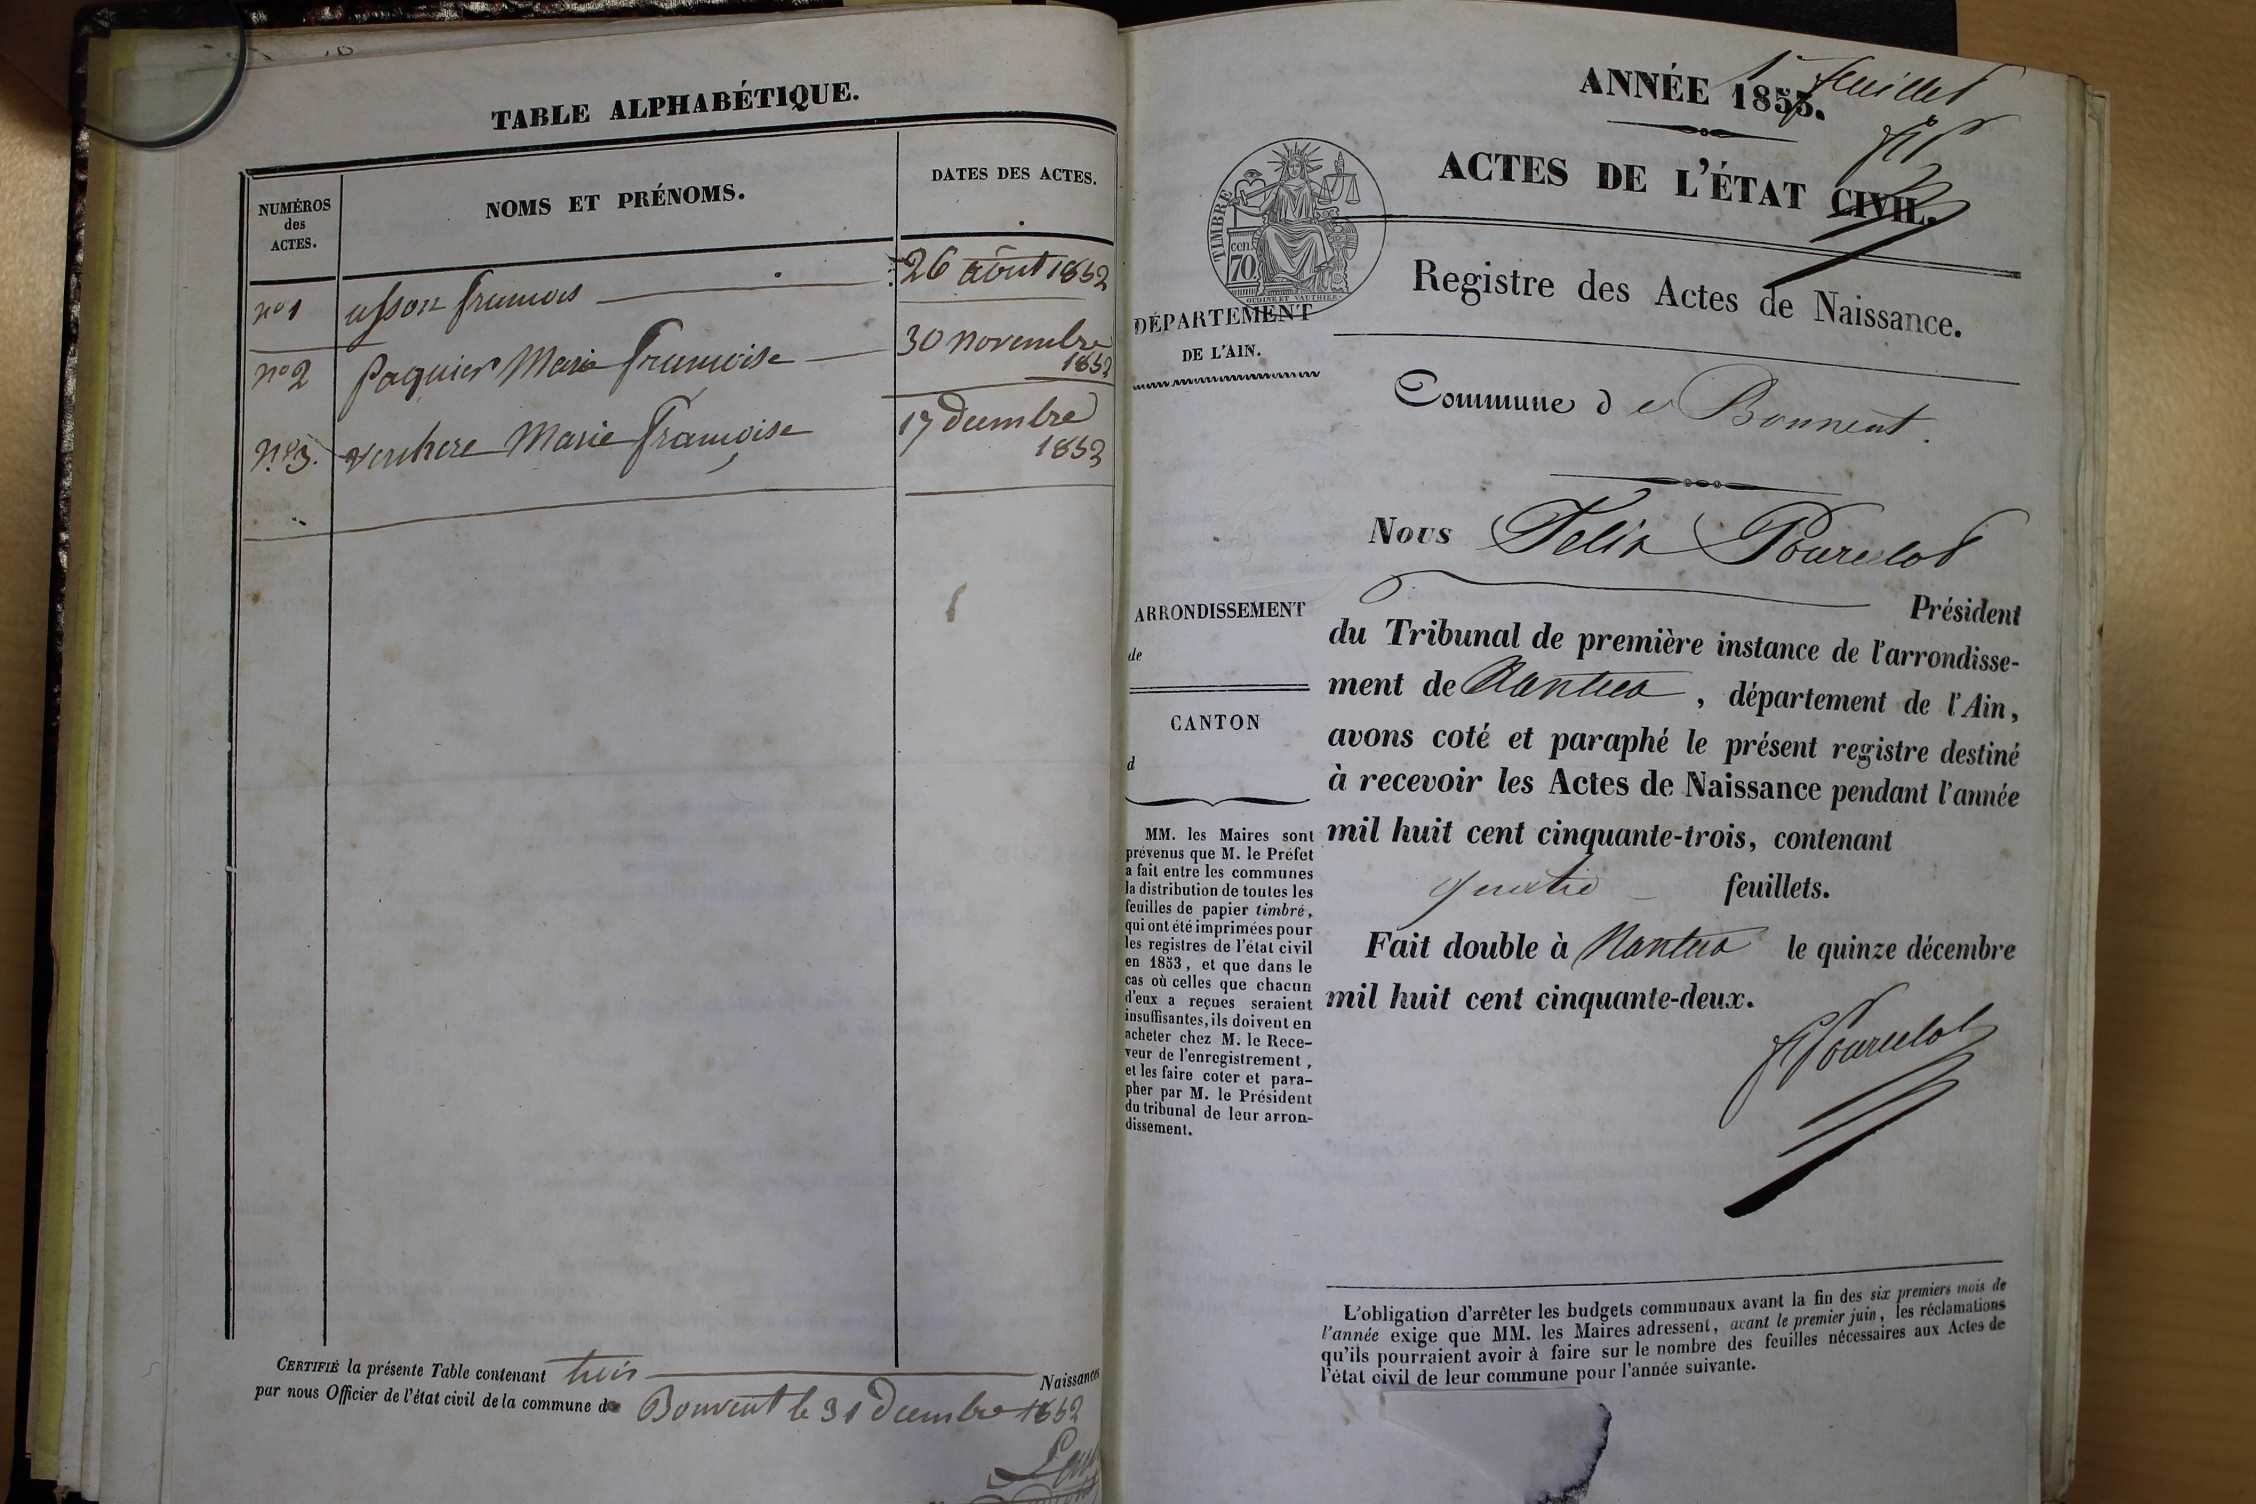 TABLE ALPHABÉTIQUE.
NUMÉROS
des
ACTES.
NOMS ET PRÉNOMS.
DATES DES ACTES.
no 1
françois
26 août 1852
no 2
paquier Marie françoise
30 novembre
1852
no 3.
verchere Marie françoise
17 decembre
1852
CERTIFIÉ la présente Table contenant trois Naissances
par nous Officier de l'état civil de la commune de Bouvent le 31 decembre 1852
1er feuillet
ANNÉE 1853.
ACTES DE L'ÉTAT CIVIL.
TIMBRE
70
cen.
OUDINE ET VAUTHIER
Registre des Actes de Naissance.
DÉPARTEMENT
DE L'AIN.
Commune de Bouvent.
Nous Felix Pourcelot
Président
ARRONDISSEMENT
de
CANTON
d
du Tribunal de première instance de l'arrondisse-
ment de Nantua, département de l'Ain,
avons coté et paraphé le présent registre destiné
à recevoir les Actes de Naissance pendant l'année
mil huit cent cinquante-trois, contenant
quatre feuillets.
Fait double à Nantua le quinze décembre
mil huit cent cinquante-deux.
FPourcelot
MM. les Maires sont
prévenus que M. le Préfet
a fait entre les communes
la distribution de toutes les
feuilles de papier timbré,
qui ont été imprimées pour
les registres de l'état civil
en 1853, et que dans le
cas où celles que chacun
d'eux a reçues seraient
insuffisantes, ils doivent en
acheter chez M. le Rece-
veur de l'enregistrement,
et les faire coter et para-
pher par M. le Président
du tribunal de leur arron-
dissement.
L'obligation d'arrêter les budgets communaux avant la fin des six premiers mois de
l'année exige que MM. les Maires adressent, avant le premier juin, les réclamations
qu'ils pourraient avoir à faire sur le nombre des feuilles nécessaires aux Actes de
l'état civil de leur commune pour l'année suivante.